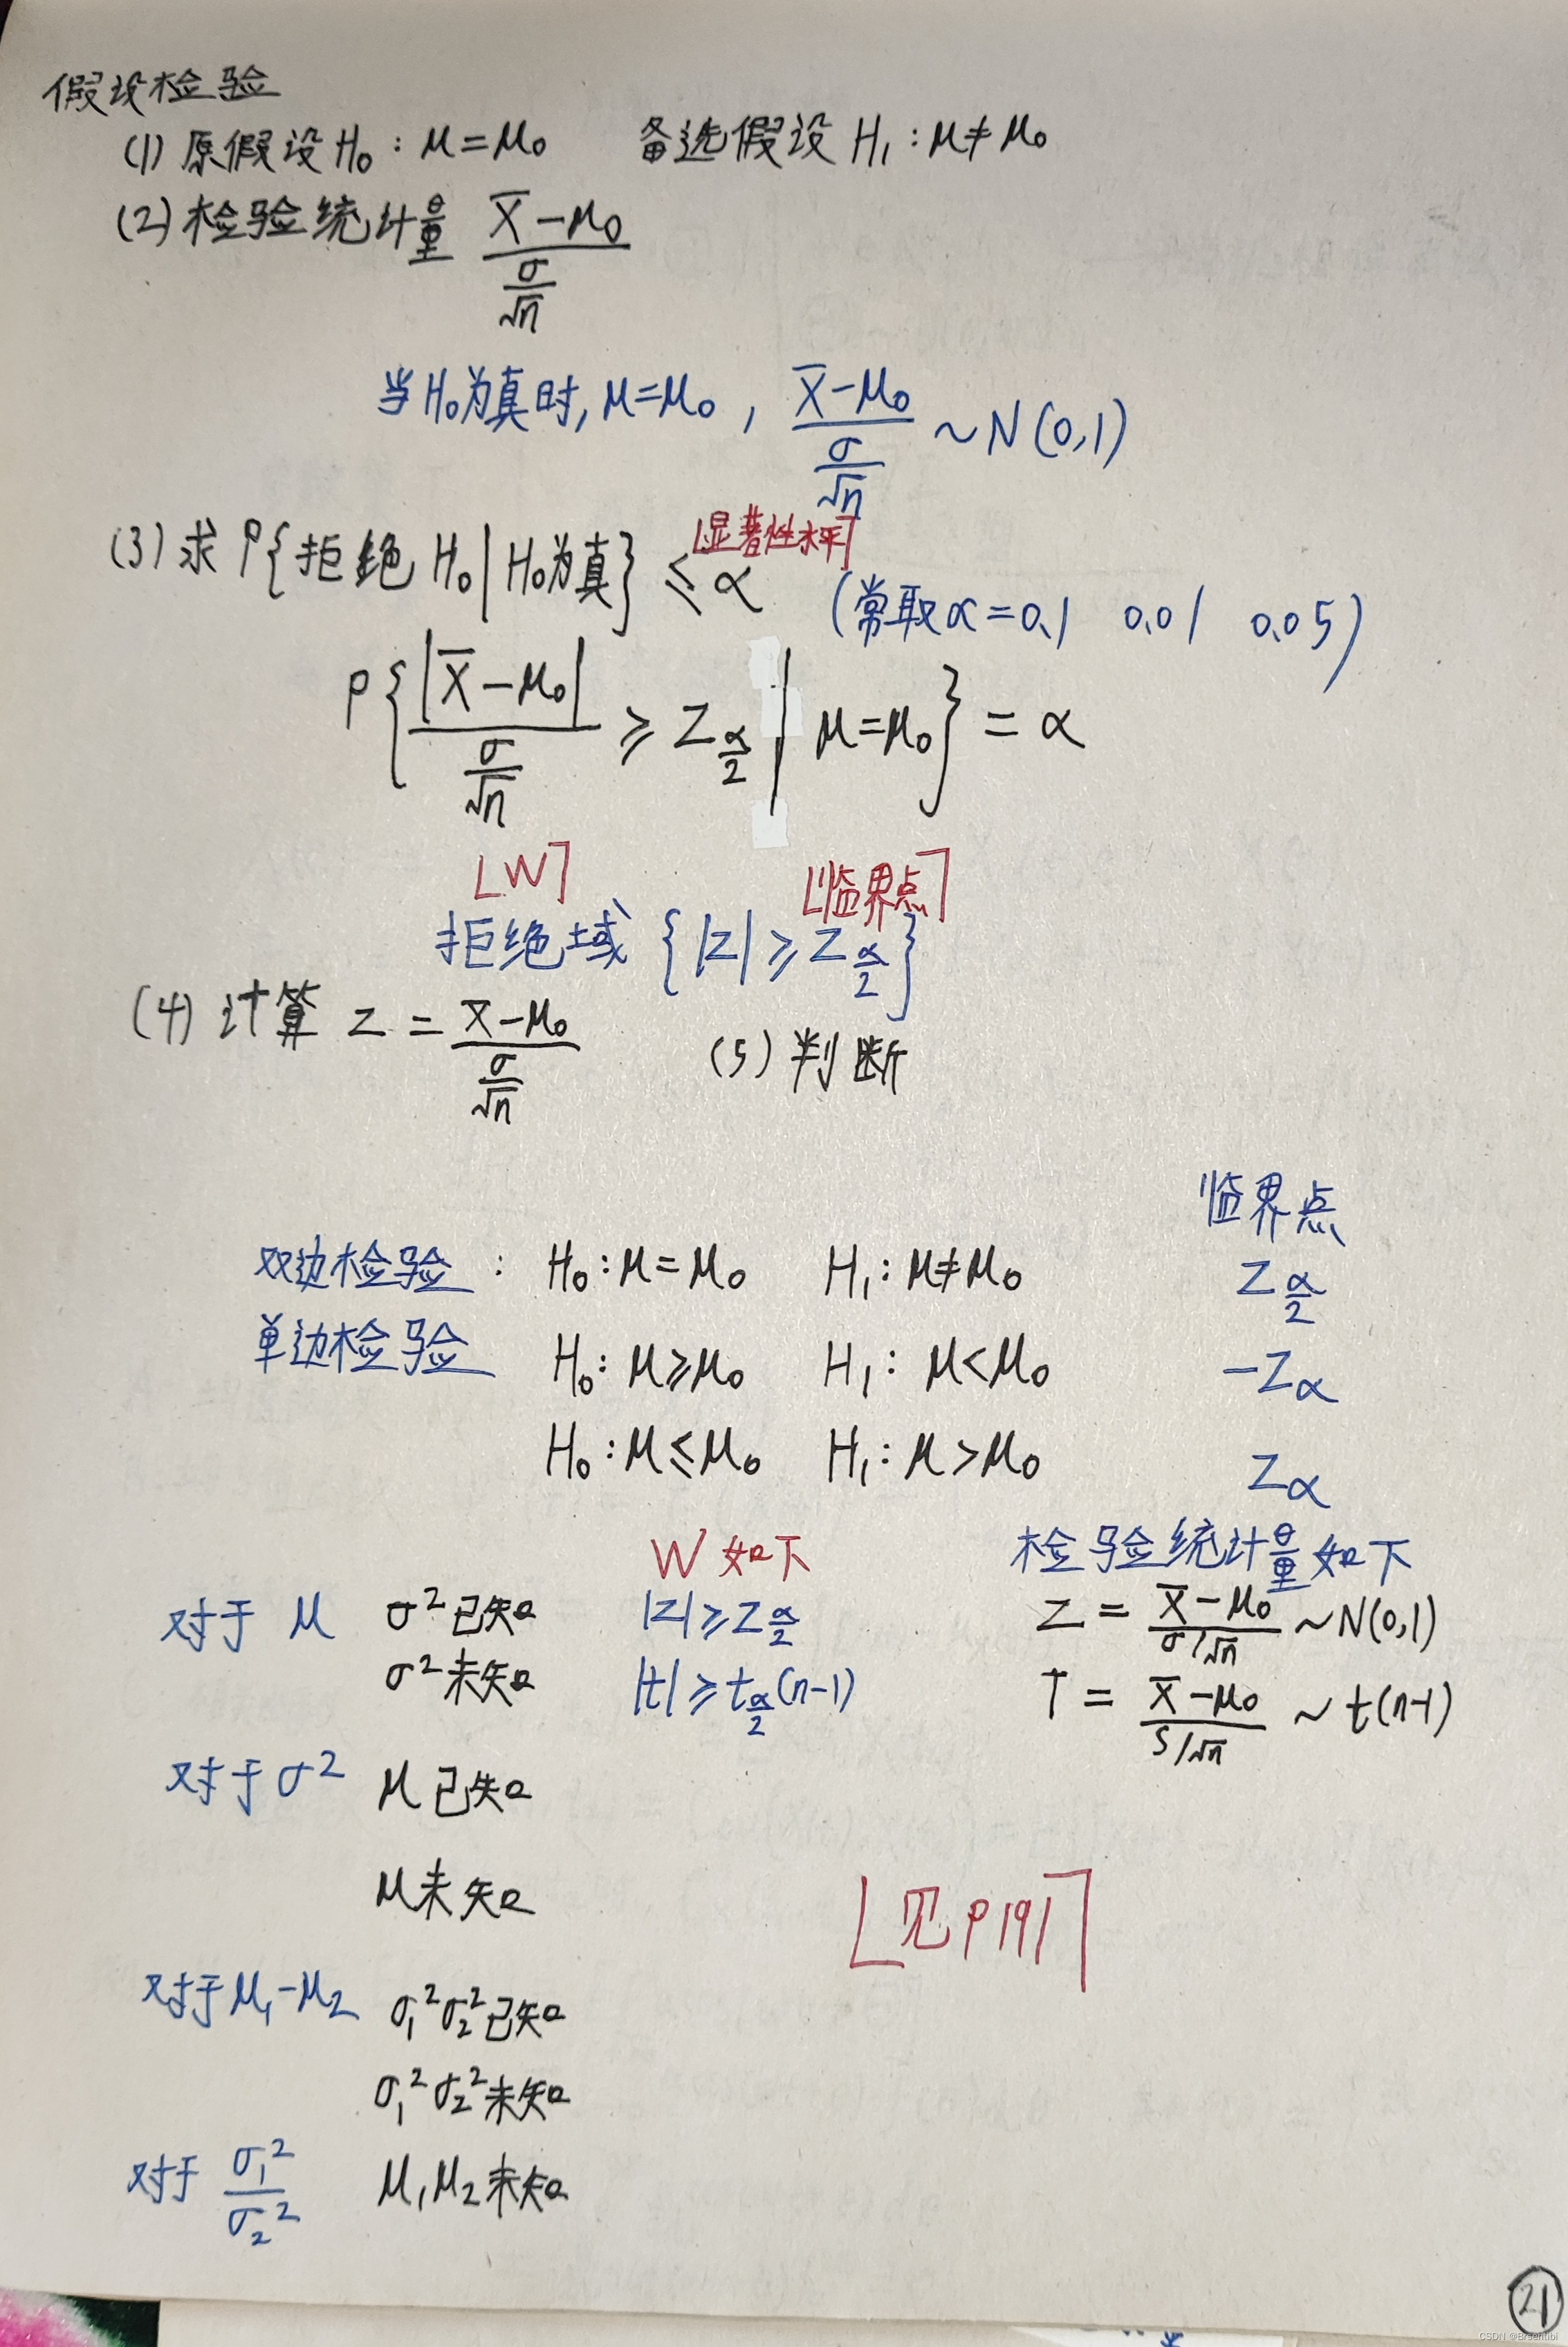 假设检验
(1) 原假设 H₀：μ=μ₀ 备选假设 H₁：μ≠μ₀
(2) 检验统计量 (X̄-μ₀)/(σ/√n)
当H₀为真时, μ=μ₀, (X̄-μ₀)/(σ/√n) ~ N(0,1)
[显著性水平]
(3) 求 P{拒绝 H₀ | H₀为真} ≤ α (常取α=0.1 0.01 0.05)
P{|X̄-μ₀|/(σ/√n) ≥ Z_{α/2} | μ=μ₀} = α
[W] [临界点]
拒绝域 {|Z| ≥ Z_{α/2}}
(4) 计算 Z = (X̄-μ₀)/(σ/√n) (5) 判断
临界点
双边检验： H₀：μ=μ₀ H₁：μ≠μ₀ Z_{α/2}
单边检验 H₀：μ≥μ₀ H₁：μ<μ₀ -Z_α
H₀：μ≤μ₀ H₁：μ>μ₀ Z_α
W 如下 检验统计量如下
对于 μ σ²已知 |Z| ≥ Z_{α/2} Z = (X̄-μ₀)/(σ/√n) ~ N(0,1)
σ²未知 |t| ≥ t_{α/2}(n-1) T = (X̄-μ₀)/(S/√n) ~ t(n-1)
对于 σ² μ已知
μ未知 [见P191]
对于 μ₁-μ₂ σ₁²σ₂²已知
σ₁²σ₂²未知
对于 σ₁²/σ₂² μ₁μ₂未知
21